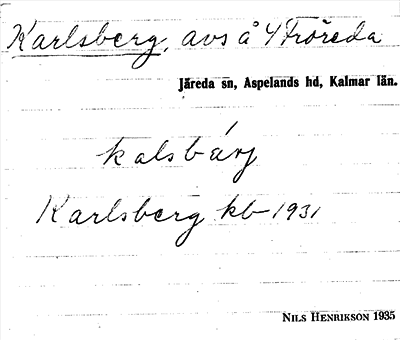 Karlsberg, avs å 4 Fröreda
Järeda sn, Aspelands hd, Kalmar län.
kalsbárj
Karlsberg kb 1931
NILS HENRIKSON 1935